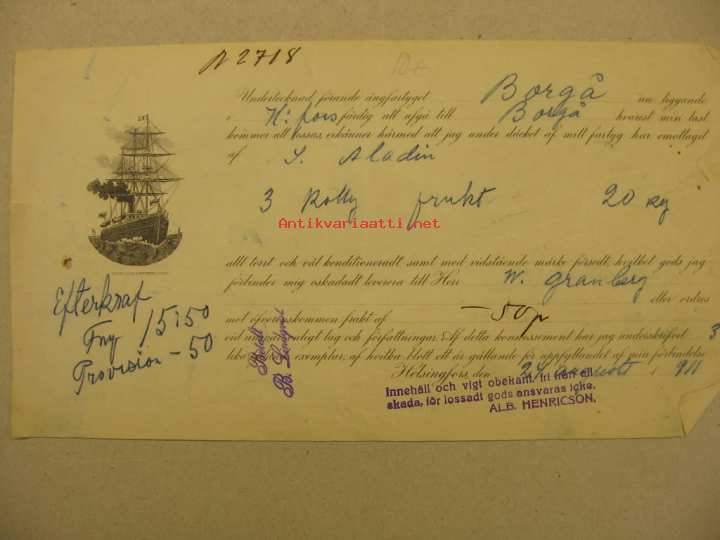 N 2718
Undertecknad, förande ångfartyget Borgå nu liggande
i H:fors färdig att afgå till Borgå hvarest min last
kommer att lossas, erkänner härmed att jag under däcket af mitt fartyg har emottagit
af S. Aladin
3 Kolly frukt 20 kg
Antikvariaatti.net
allt torrt och väl konditioneradt samt med vidstående märke försedt, hvilket gods jag
förbinder mig oskadadt leverera till Herr W. Granberg
eller ordres
mot öfverenskommen frakt af —50 p
vid lag och författningar. Af detta konossement har jag underskrifvit 3
lika exemplar, af hvilka blott ett är gällande för uppfyllandet af min förbindelse
Helsingfors, den 24 1911
Efterkraf
Fmy 15:50
Provision — 50
Betalt
Innehåll och vigt obekant, fri från all
skada, för lossadt gods ansvaras icke.
ALB. HENRICSON.